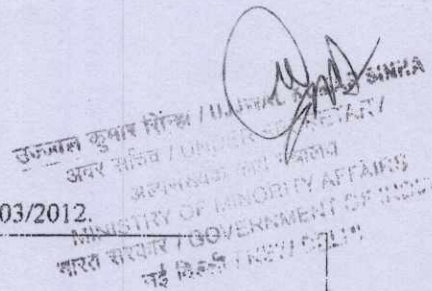 उज्जवल कुमार सिन्हा / UJJWAL KUMAR SINHA
अवर सचिव / UNDER SECRETARY
अल्पसंख्यक कार्य मंत्रालय
MINISTRY OF MINORITY AFFAIRS
भारत सरकार / GOVERNMENT OF INDIA
नई दिल्ली / NEW DELHI
03/2012.